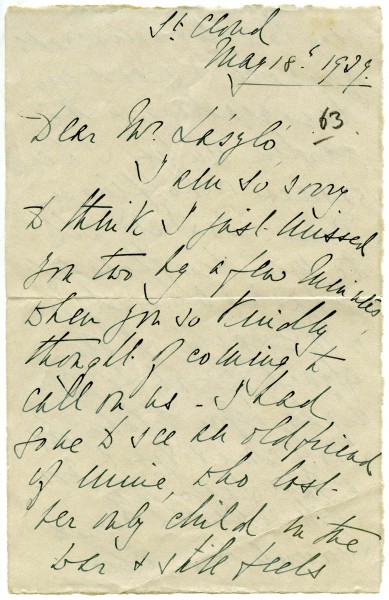 St Cloud
May 18th 1929.
63
Dear Mr. László,
I am so sorry
to think I just missed
you two by a few minutes,
when you so kindly
thought of coming to
call on us - I had
gone to see an old friend
of mine, who lost
her only child in the
war & still feels